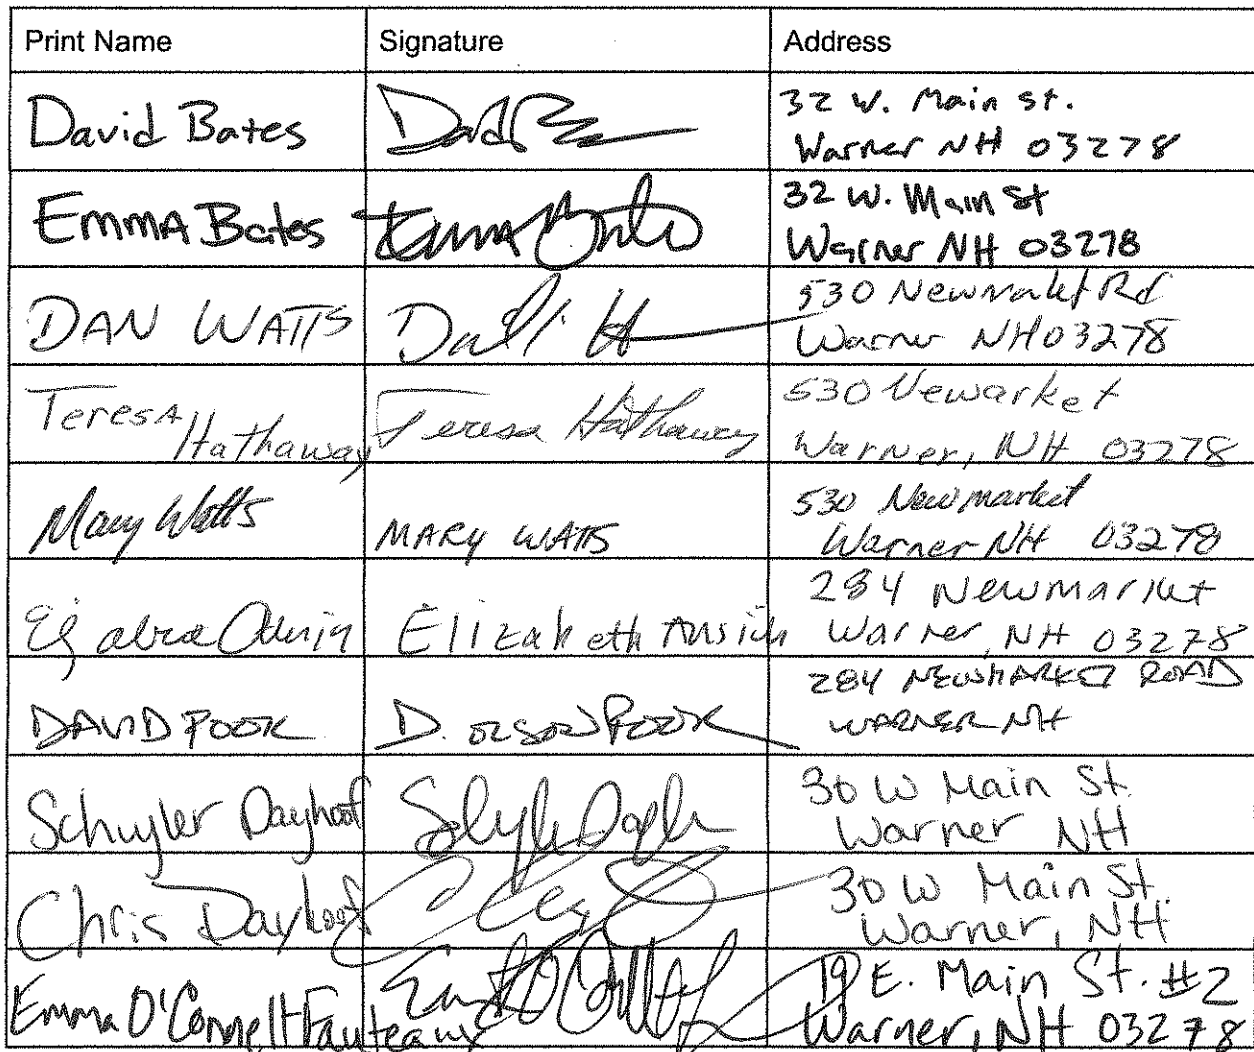 Print Name Signature Address
David Bates 32 W. Main St.
Warner NH 03278
EMMA Bates Emma Bates 32 W. Main St
Warner NH 03278
DAN WATTS 530 Newmarket Rd
Warner NH 03278
Teresa Hathaway Teresa Hathaway 530 Newarket
Warner, NH 03278
Mary Watts MARY WATTS 530 Newmarket
Warner NH 03278
Elizabeth 284 Newmarket
Warner, NH 03278
DAVID POOK D. OLSON POOK 284 NEWMARKET ROAD
WARNER NH
Schuyler Dayhoof 30 W Main St.
Warner NH
Chris Dayhoof 30 W Main St.
Warner, NH
Emma O'Connell Fauteaux 19 E. Main St. #2
Warner, NH 03278